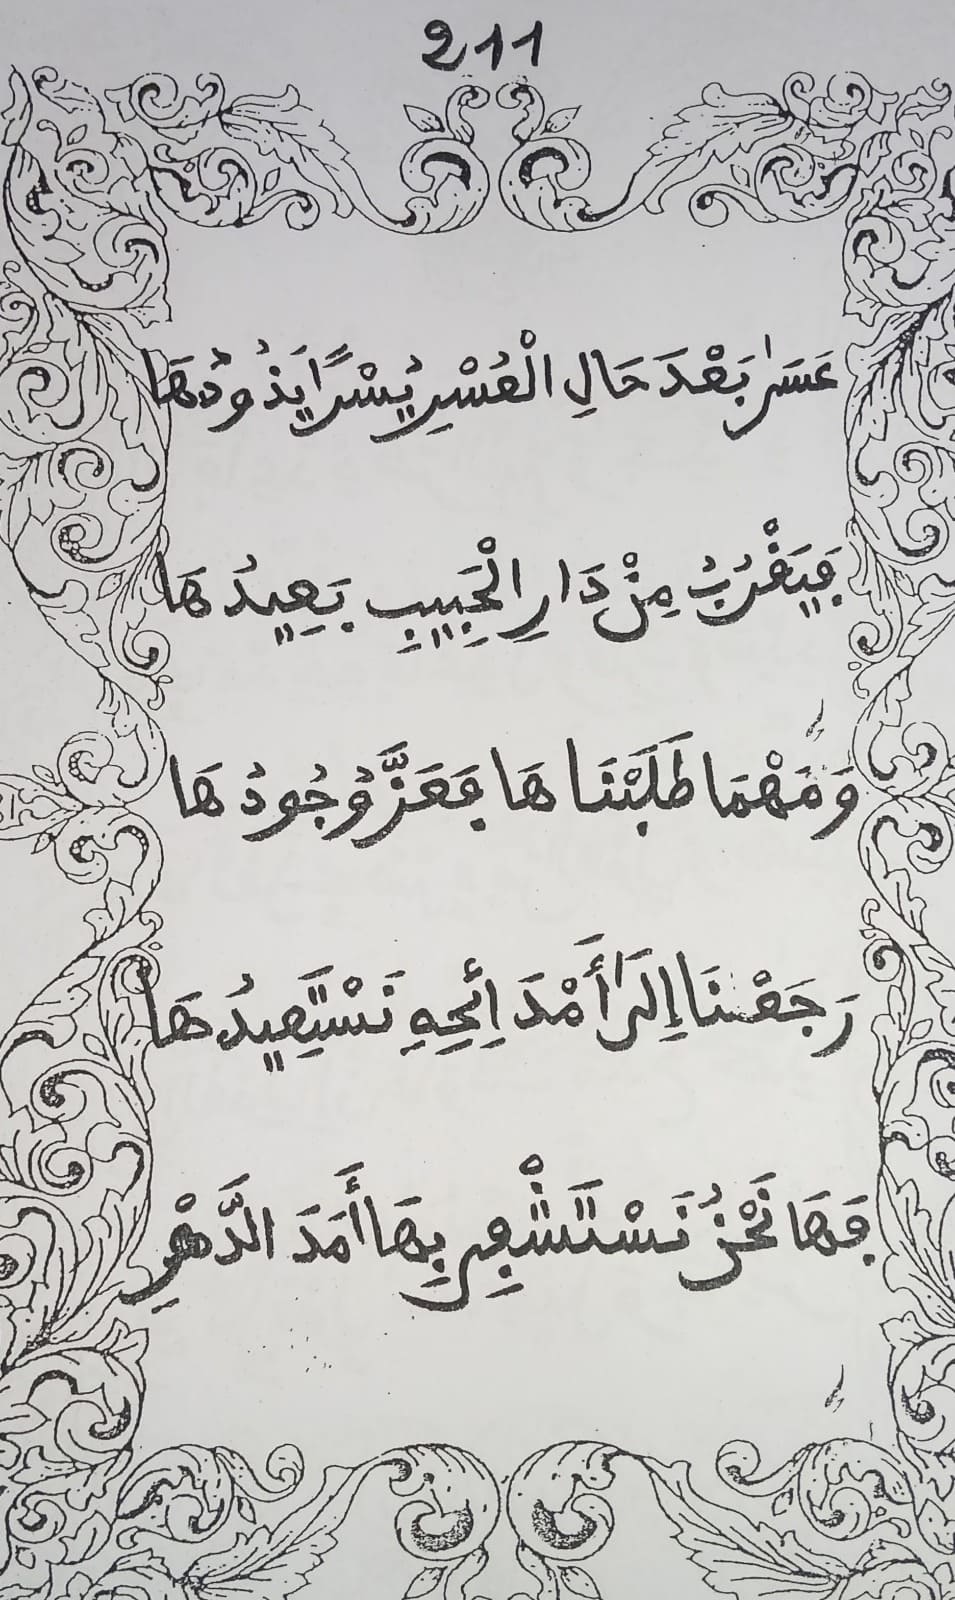 211
عَسَىٰ بَعْدَ حَالِ الْعُسْرِ يُسْرًا يَذُودُهَا
فَيَقْرُبُ مِنْ دَارِ الْحَبِيبِ بَعِيدُهَا
وَمَهْمَا طَلَبْنَاهَا فَعَزَّ وُجُودُهَا
رَجَعْنَا إِلَىٰ أَمْدَائِحِهِ نَسْتَعِيدُهَا
فَهَا نَحْنُ نَسْتَشْفِي بِهَا أَمَدَ الدَّهْرِ